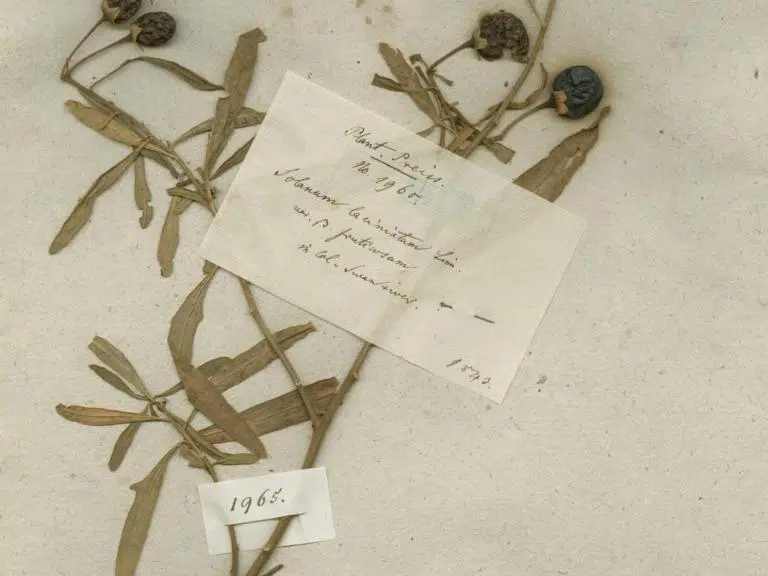 Plant. Preiss.
No. 1965.
Solanum laciniatum Lin.
var. β. fruticosum
in Col. Swanriver. - -
1843.
1965.